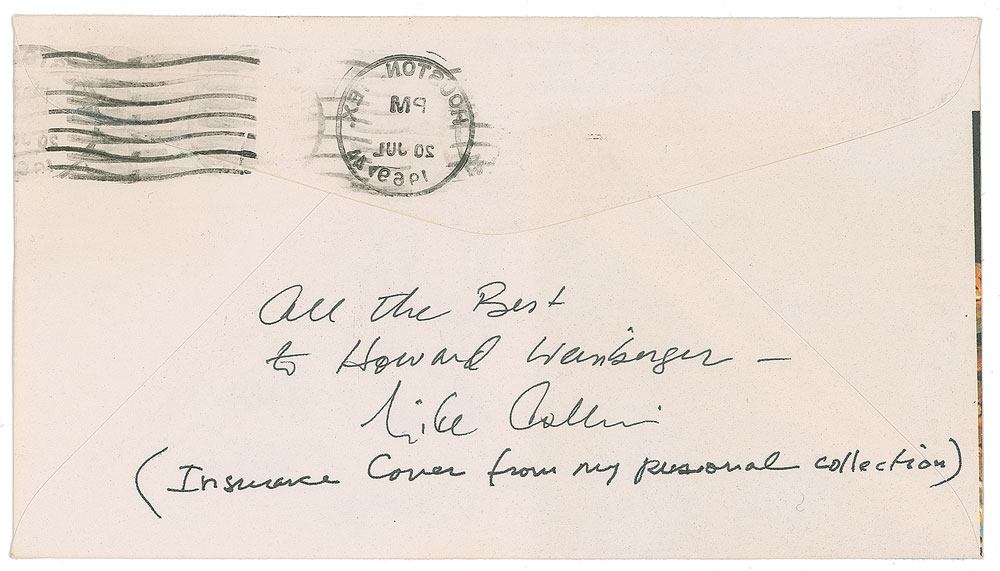 HOUSTON, TEX.
PM
20 JUL
1969
All the Best
to Howard Weinberger —
Mike Collins
(Insurance Cover from my personal collection)